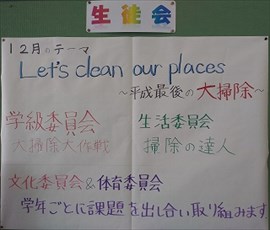 生徒会
12月のテーマ
Let's clean our places
～平成最後の大掃除～
学級委員会 生活委員会
大掃除大作戦 掃除の達人
文化委員会&体育委員会
学年ごとに課題を出し合い取り組みます